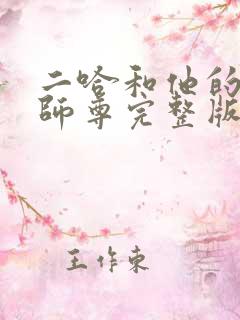 二哈和他的
師尊完整版
王作東